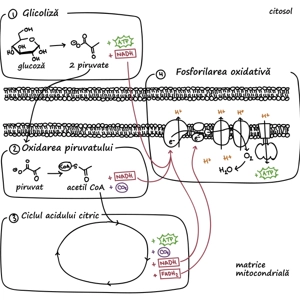 citosol
1 Glicoliză
glucoză
2 piruvate
+ ATP
+ NADH
4 Fosforilarea oxidativă
H+
H+
H+
H+
e-
e-
H+
H+
O2
H2O
+ ATP
2 Oxidarea piruvatului
CoA
piruvat
acetil CoA
+ NADH
+ CO2
3 Ciclul acidului citric
+ ATP
+ CO2
+ NADH
+ FADH2
matrice
mitocondrială